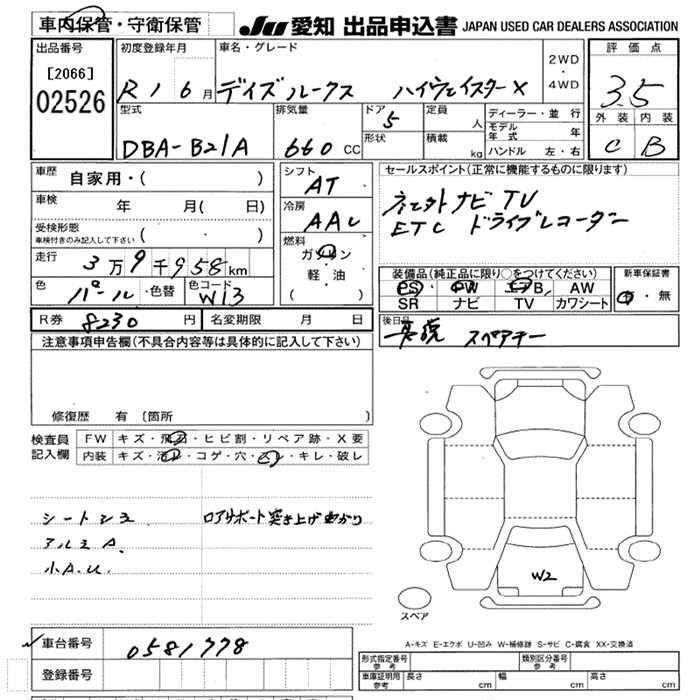 車内保管・守衛保管
JU 愛知 出品申込書 JAPAN USED CAR DEALERS ASSOCIATION
出品番号 初度登録年月 車名・グレード 2WD・4WD 評価点
[2066]
02526
R1 6月 デイズルークス ハイウェイスターX 3.5
型式 排気量 ドア 5 定員 人 ディーラー・並行 外装 内装
DBA-B21A 660cc 形状 積載 kg モデル年式 年 C B
ハンドル 左・右
車歴 自家用・( ) シフト AT セールスポイント(正常に機能するものに限ります)
車検 年 月( 日) 冷房 AAC ナビ TV
受検形態 車検付きのみ記入して下さい ( ・ ) ETC ドライブレコーダー
走行 3万9千958km 燃料 ガソリン 軽・油 ( )
色 パール ・色替 色コード W13
装備品(純正品に限り○をつけてください) 新車保証書
PS PW エアB AW 有・無
SR ナビ TV カワシート
R券 8230円 名変期限 月 日 後日品 スペアキー
注意事項申告欄(不具合内容等は具体的に記入して下さい)
修復歴 有 (箇所
検査員記入欄 FW キズ・飛石・ヒビ割・リペア跡・X要
内装 キズ・汚レ・コゲ・穴・スレ・キレ・破レ
シートシミ ロアサポート突き上げ曲がり
アルミA.
小A.U.
W2
スペア
A-キズ E-エクボ U-凹み W-補修跡 S-サビ C-腐食 XX-交換済
車台番号 0581778
登録番号
形式指定番号 参考 類別区分番号 参考
車庫証明用 参考 長さ cm 幅 cm 高さ cm